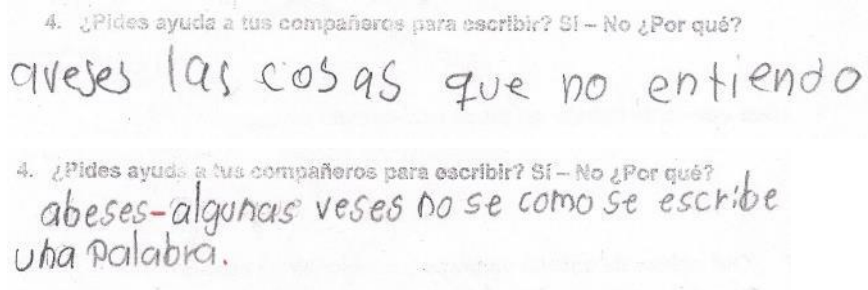 4. ¿Pides ayuda a tus compañeros para escribir? SI – No ¿Por qué?
aveses las cosas que no entiendo
4. ¿Pides ayuda a tus compañeros para escribir? Sí – No ¿Por qué?
abeses-algunas veses no se como se escribe
una palabra.